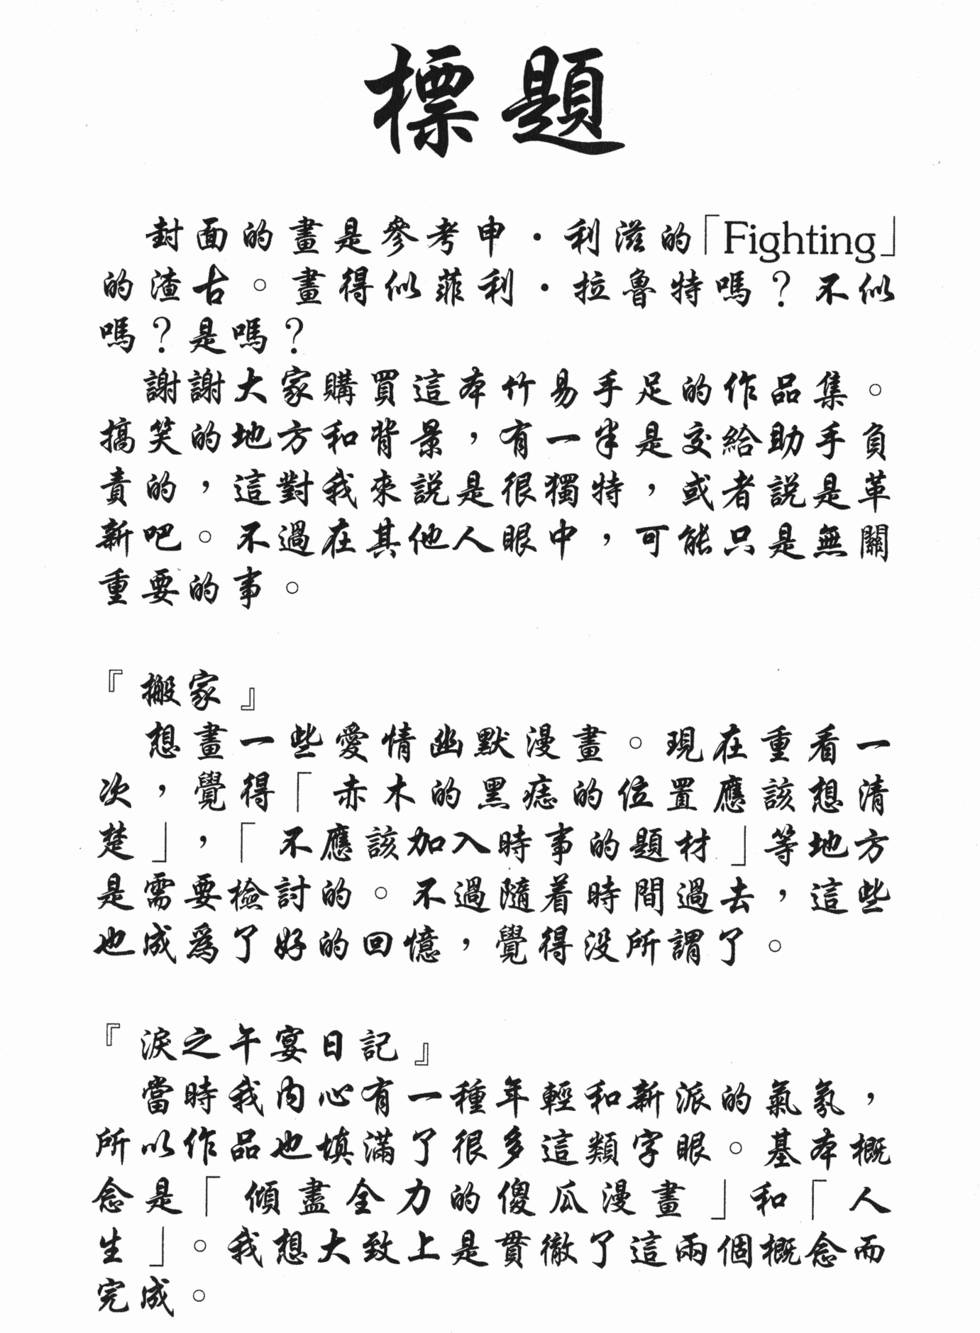 標題
封面的畫是參考申・利滋的「Fighting」
的渣古。畫得似菲利・拉魯特嗎？不似
嗎？是嗎？
謝謝大家購買這本竹易手足的作品集。
搞笑的地方和背景，有一半是交給助手負
責的，這對我來説是很獨特，或者説是革
新吧。不過在其他人眼中，可能只是無關
重要的事。
『搬家』
想畫一些愛情幽默漫畫。現在重看一
次，覺得「赤木的黑痣的位置應該想清
楚」，「不應該加入時事的題材」等地方
是需要檢討的。不過隨着時間過去，這些
也成爲了好的回憶，覺得没所謂了。
『淚之午宴日記』
當時我内心有一種年輕和新派的氣氛，
所以作品也填滿了很多這類字眼。基本概
念是「傾盡全力的傻瓜漫畫」和「人
生」。我想大致上是貫徹了這兩個概念而
完成。